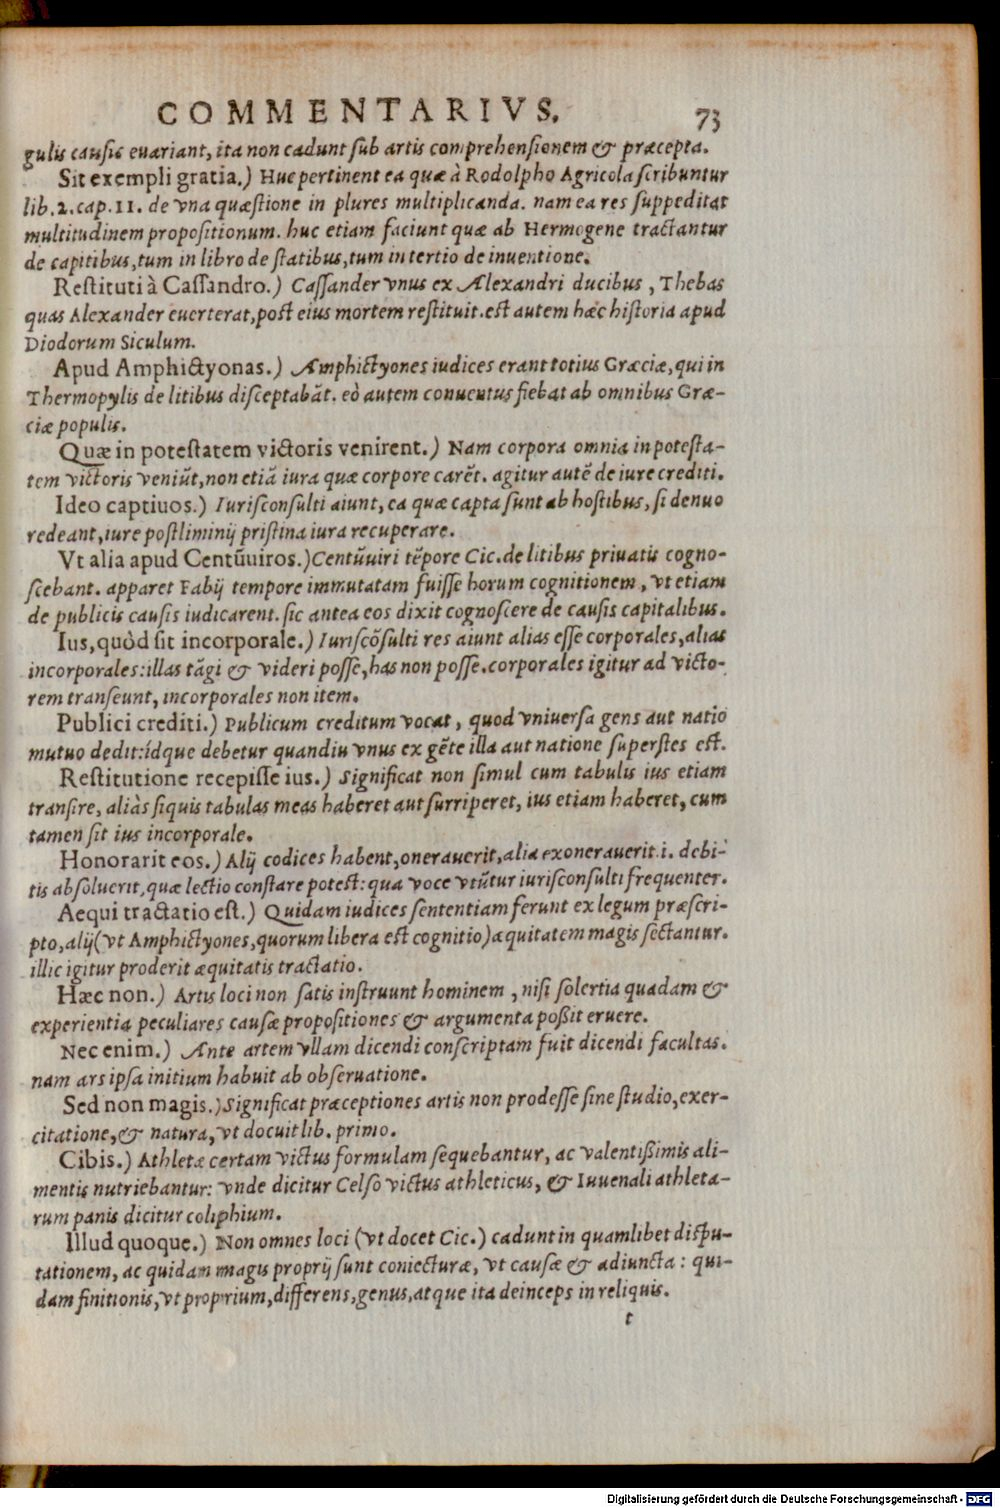 COMMENTARIVS. 73
gulis causis euariant, ita non cadunt sub artis comprehensionem & præcepta.
Sit exempli gratia.) Huc pertinent ea quæ à Rodolpho Agricola scribuntur
lib.2.cap.11. de vna quæstione in plures multiplicanda. nam ea res suppeditat
multitudinem propositionum. huc etiam faciunt quæ ab Hermogene tractantur
de capitibus, tum in libro de statibus, tum in tertio de inuentione.
Restituti à Cassandro.) Cassander vnus ex Alexandri ducibus, Thebas
quas Alexander euerterat, post eius mortem restituit. est autem hæc historia apud
Diodorum Siculum.
Apud Amphictyonas.) Amphictyones iudices erant totius Græciæ, qui in
Thermopylis de litibus disceptabãt. eò autem conuentus fiebat ab omnibus Græ-
ciæ populis.
Quæ in potestatem victoris venirent.) Nam corpora omnia in potesta-
tem victoris veniũt, non etiã iura quæ corpore carẽt. agitur autẽ de iure crediti.
Ideo captiuos.) Iurisconsulti aiunt, ea quæ capta sunt ab hostibus, si denuo
redeant, iure postliminij pristina iura recuperare.
Vt alia apud Centũuiros.) Centũuiri tẽpore Cic. de litibus priuatis cogno-
scebant. apparet Fabij tempore immutatam fuisse horum cognitionem, vt etiam
de publicis causis iudicarent. sic antea eos dixit cognoscere de causis capitalibus.
Ius, quòd sit incorporale.) Iuriscõsulti res aiunt alias esse corporales, alias
incorporales: illas tãgi & videri posse, has non posse. corporales igitur ad victo-
rem transeunt, incorporales non item.
Publici crediti.) Publicum creditum vocat, quod vniuersa gens aut natio
mutuo dedit: ídque debetur quandiu vnus ex gẽte illa aut natione superstes est.
Restitutione recepisse ius.) Significat non simul cum tabulis ius etiam
transire, aliàs siquis tabulas meas haberet aut surriperet, ius etiam haberet, cum
tamen sit ius incorporale.
Honorarit eos.) Alij codices habent, onerauerit, alia exonerauerit .i. debi-
tis absoluerit, quæ lectio constare potest: qua voce vtũtur iurisconsulti frequenter.
Aequi tractatio est.) Quidam iudices sententiam ferunt ex legum præscri-
pto, alij (vt Amphictyones, quorum libera est cognitio) æquitatem magis sectantur.
illic igitur proderit æquitatis tractatio.
Hæc non.) Artis loci non satis instruunt hominem, nisi solertia quadam &
experientia peculiares causæ propositiones & argumenta poßit eruere.
Nec enim.) Ante artem vllam dicendi conscriptam fuit dicendi facultas.
nam ars ipsa initium habuit ab obseruatione.
Sed non magis.) Significat præceptiones artis non prodesse sine studio, exer-
citatione, & natura, vt docuit lib. primo.
Cibis.) Athletæ certam victus formulam sequebantur, ac valentißimis ali-
mentis nutriebantur: vnde dicitur Celso victus athleticus, & Iuuenali athleta-
rum panis dicitur coliphium.
Illud quoque.) Non omnes loci (vt docet Cic.) cadunt in quamlibet dispu-
tationem, ac quidam magis proprij sunt coniecturæ, vt causæ & adiuncta: qui-
dam finitionis, vt proprium, differens, genus, atque ita deinceps in reliquis.
t
Digitalisierung gefördert durch die Deutsche Forschungsgemeinschaft - DFG